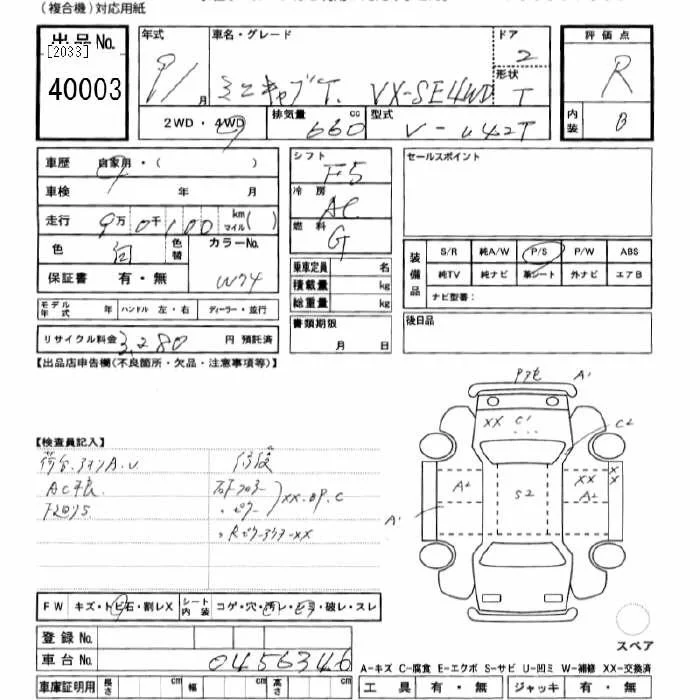 (複合機)対応用紙
出品No.
[2033]
40003
年式
9/1月
車名・グレード
ミニキャブT. VX-SE4WD
ドア
2
形状
T
2WD・4WD
排気量
660 cc
型式
V-U42T
評価点
R
内装
B
車歴 自家用・( )
車検 年 月
走行 9万0千100 km マイル ( )
色 白 色替 カラーNo. W74
保証書 有・無
モデル年式 年 ハンドル 左・右 ディーラー・並行
リサイクル料金 3,280 円 預託済
シフト F5
冷房 AC
燃料 G
乗車定員 名
積載量 kg
総重量 kg
書類期限
月 日
セールスポイント
装備品
S/R 純A/W P/S P/W ABS
純TV 純ナビ 革シート 外ナビ エアB
ナビ型番:
後日品
【出品店申告欄(不良箇所・欠品・注意事項等)】
【検査員記入】
荷台 A.U
AC
XX.BP.C
XX
A1
XX C1
C2
A2
S2
XX
A2
X
X
A1
FW キズ・トビ石・割レX シート内装 コゲ・穴・汚レ・シミ・破レ・スレ
登録No.
車台No. 0456346
車庫証明用 長さ cm 幅 cm 高さ cm
スペア
A-キズ C-腐食 E-エクボ S-サビ U-凹ミ W-補修 XX-交換済
工具 有・無 ジャッキ 有・無